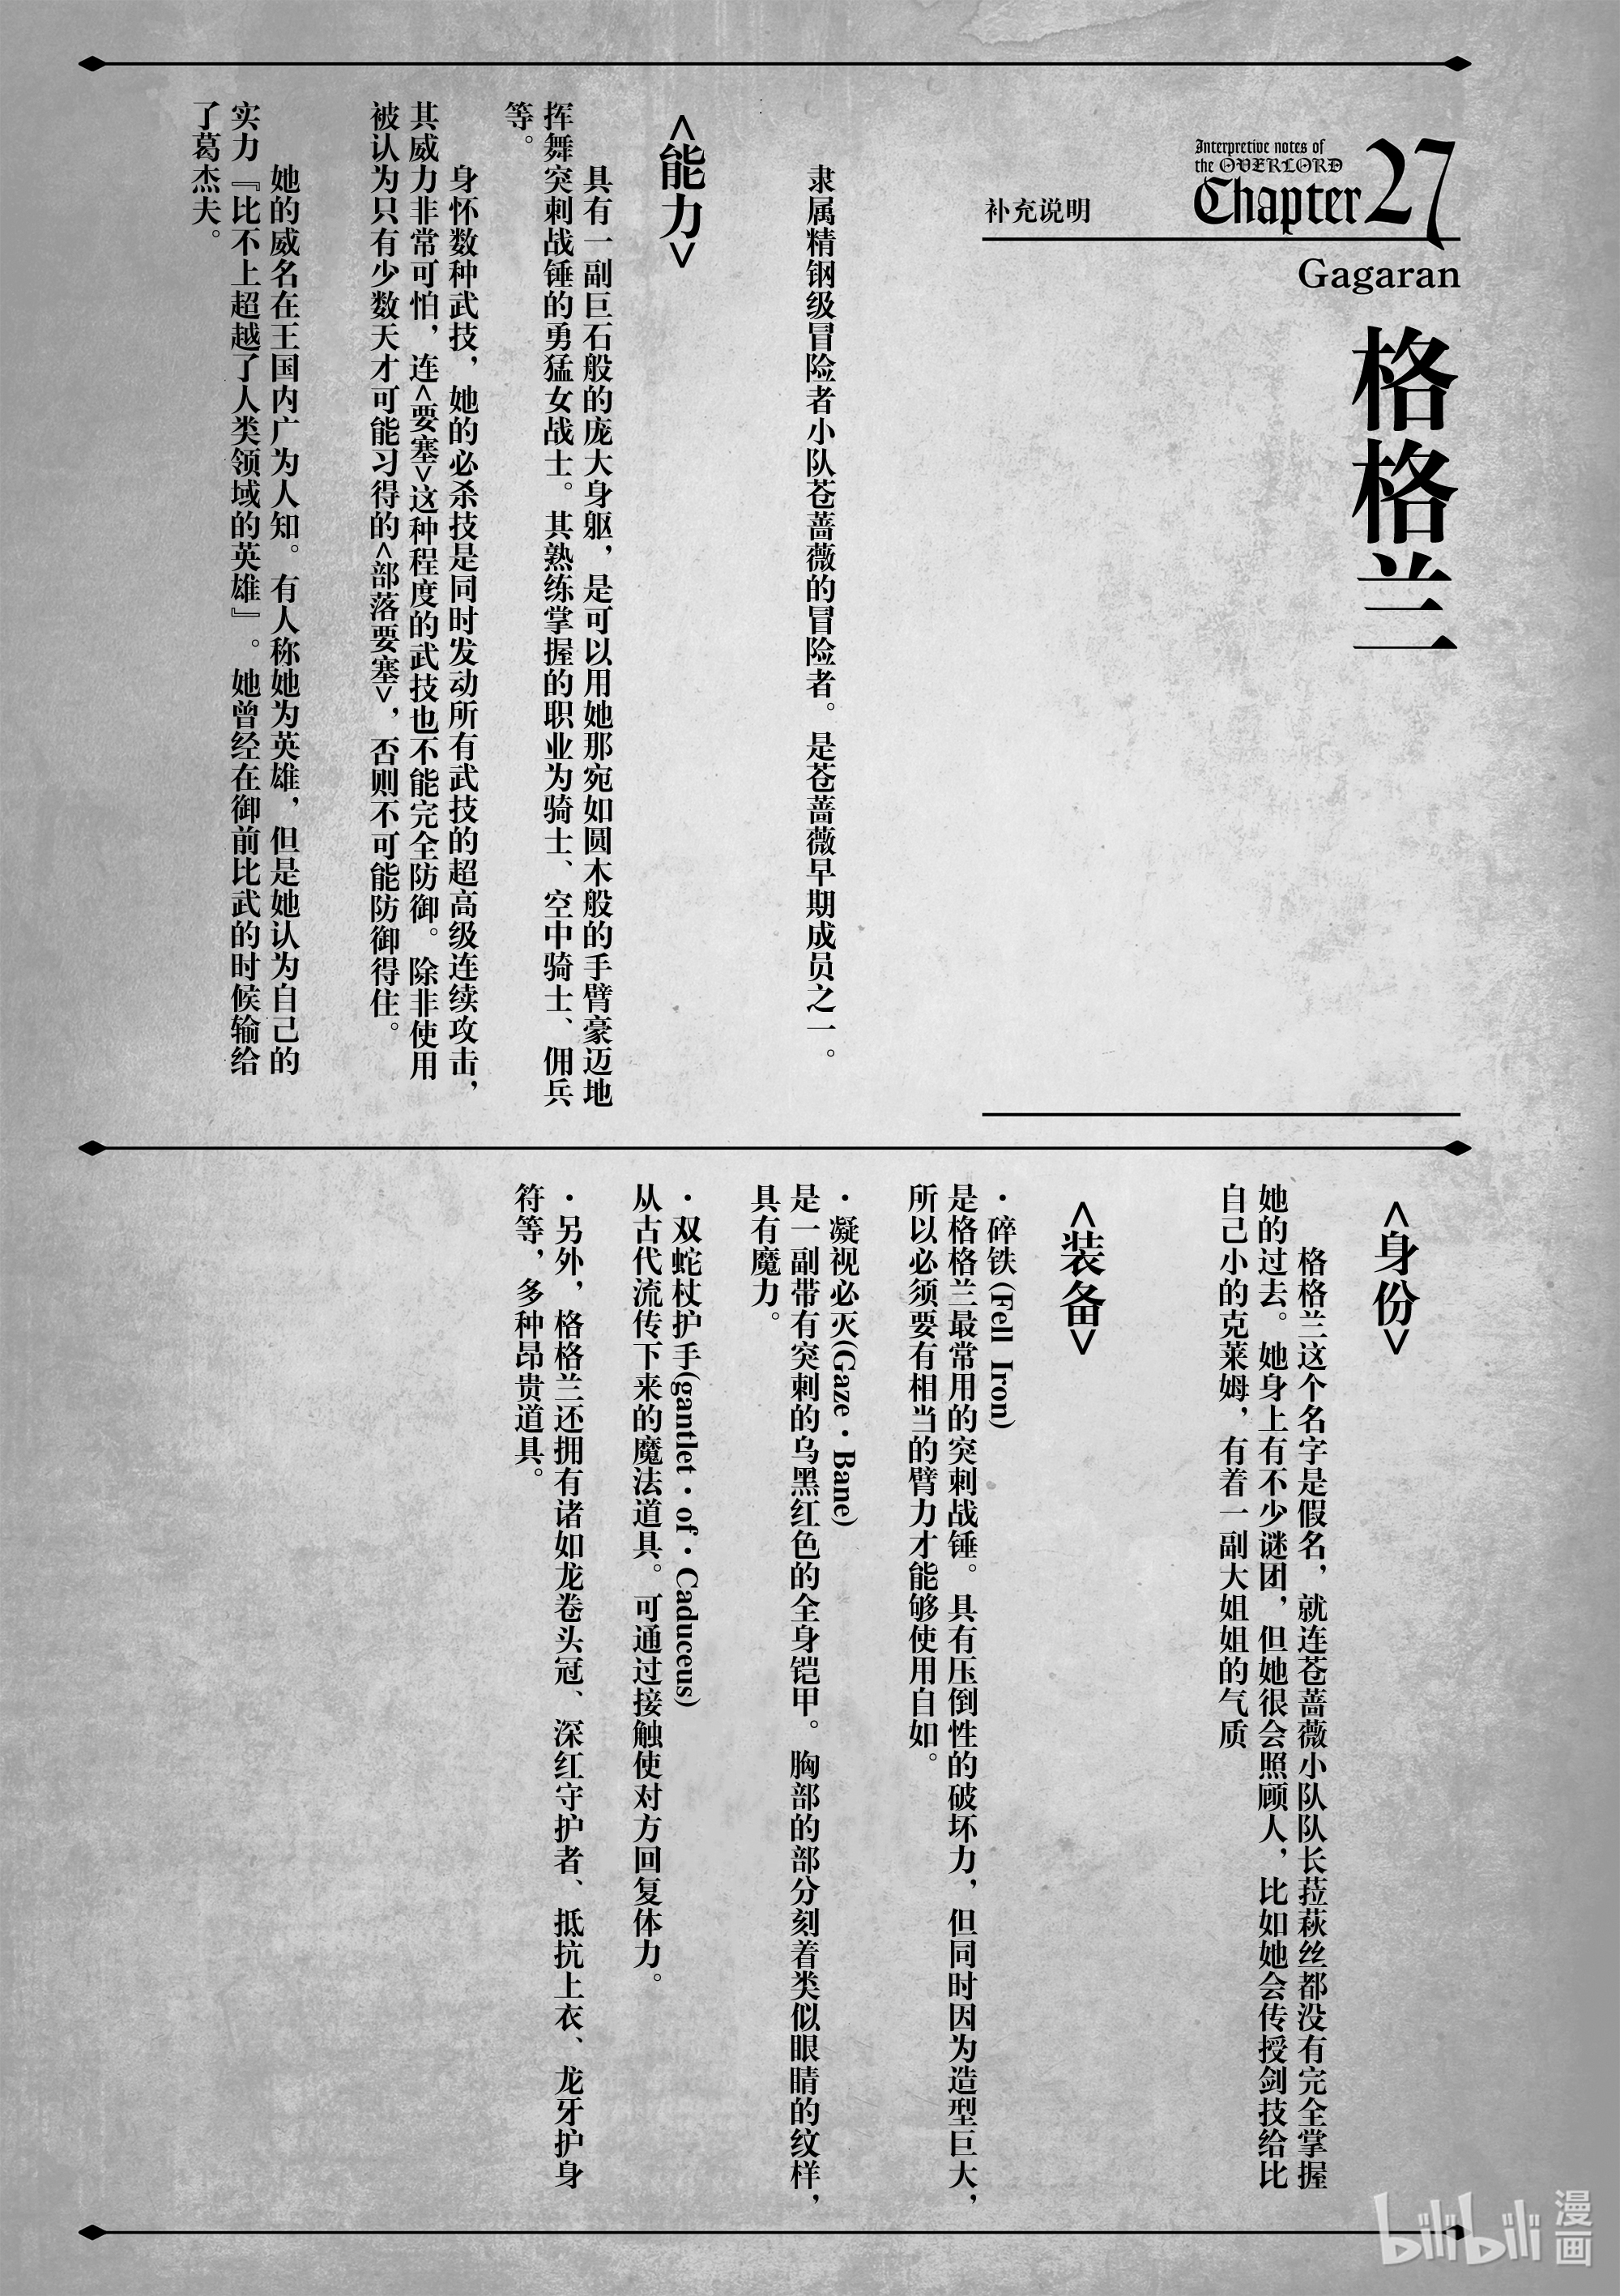 Interpretive notes of
the OVERLORD
Chapter 27
补充说明
Gagaran
格格兰
隶属精钢级冒险者小队苍蔷薇的冒险者。是苍蔷薇早期成员之一。
<能力>
具有一副巨石般的庞大身躯，是可以用她那宛如圆木般的手臂豪迈地
挥舞突刺战锤的勇猛女战士。其熟练掌握的职业为骑士、空中骑士、佣兵
等。
身怀数种武技，她的必杀技是同时发动所有武技的超高级连续攻击，
其威力非常可怕，连<要塞>这种程度的武技也不能完全防御。除非使用
被认为只有少数天才可能习得的<部落要塞>，否则不可能防御得住。
她的威名在王国内广为人知。有人称她为英雄，但是她认为自己的
实力『比不上超越了人类领域的英雄』。她曾经在御前比武的时候输给
了葛杰夫。
<身份>
格格兰这个名字是假名，就连苍蔷薇小队队长菈萩丝都没有完全掌握
她的过去。她身上有不少谜团，但她很会照顾人，比如她会传授剑技给比
自己小的克莱姆，有着一副大姐姐的气质
<装备>
·碎铁(Fell Iron)
是格格兰最常用的突刺战锤。具有压倒性的破坏力，但同时因为造型巨大，
所以必须要有相当的臂力才能够使用自如。
·凝视必灭(Gaze·Bane)
是一副带有突刺的乌黑红色的全身铠甲。胸部的部分刻着类似眼睛的纹样，
具有魔力。
·双蛇杖护手(gantlet·of·Caduceus)
从古代流传下来的魔法道具。可通过接触使对方回复体力。
·另外，格格兰还拥有诸如龙卷头冠、深红守护者、抵抗上衣、龙牙护身
符等，多种昂贵道具。
bilibili 漫画